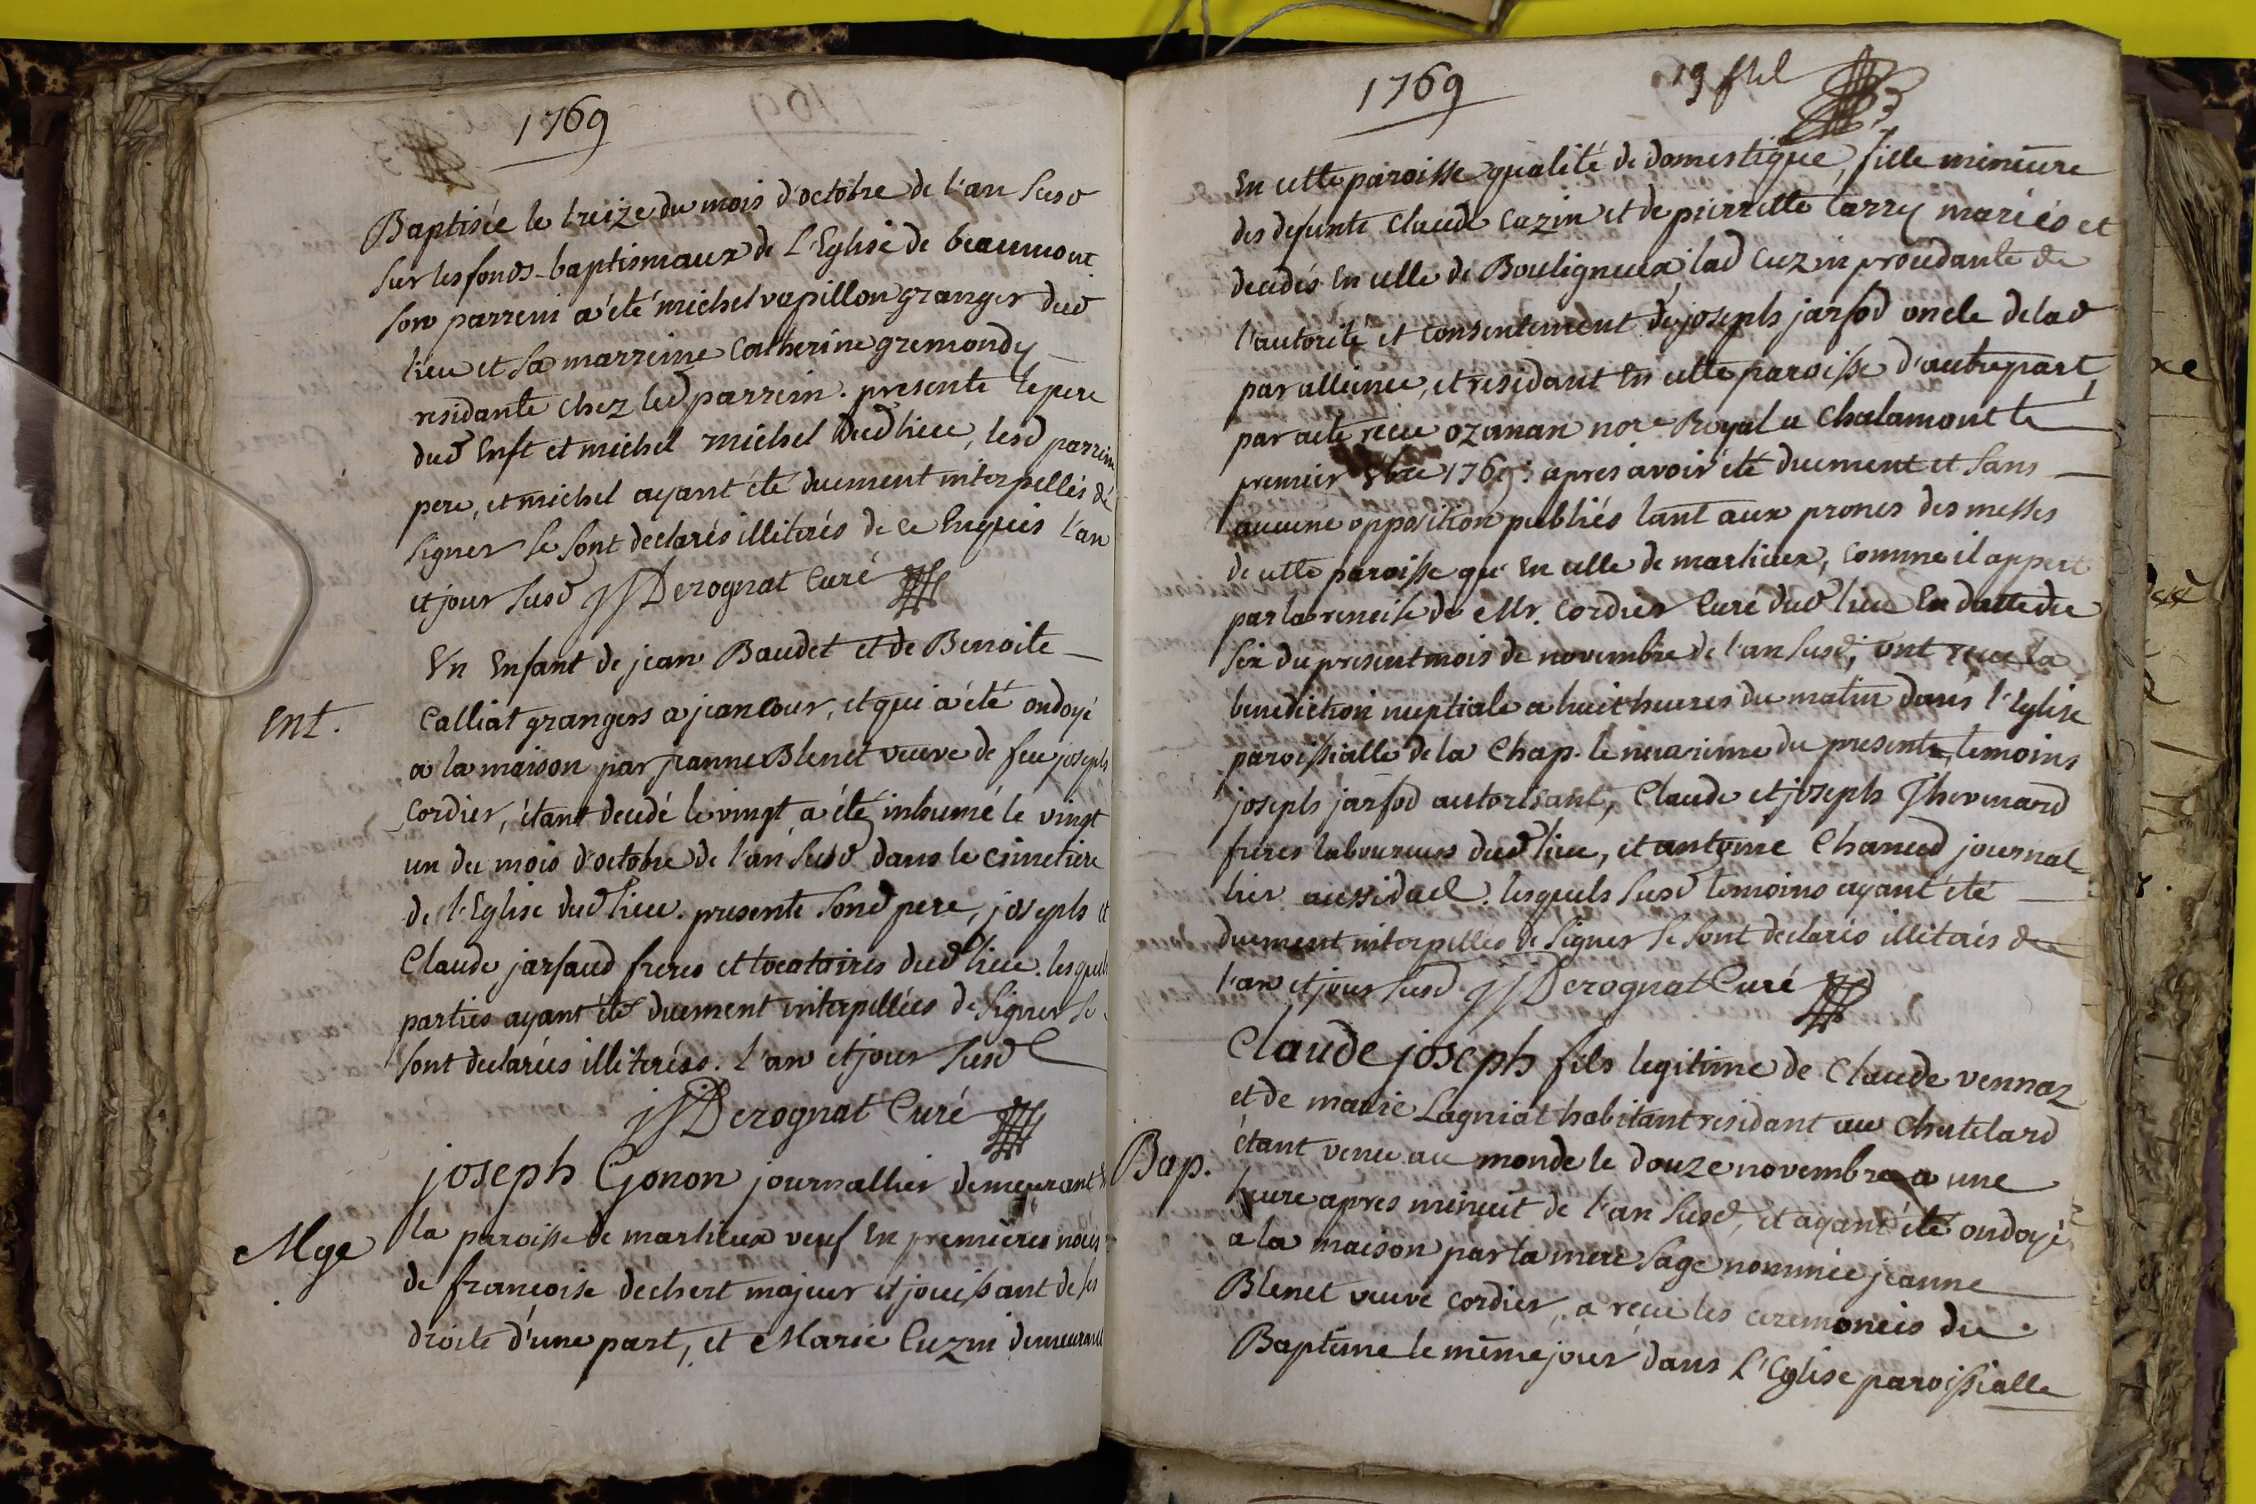 1769
Baptisée le treize du mois d'octobre de l'an susd
sur les fonds-baptismaux de L'Eglise de beaumont.
son parrein a été michel vapillon granger dud
lieu et sa marreine Catherine gremondy
residante chez led parrein. presente le pere
dud Enft et michel michel dud lieu, lesd parrein
pere, et michel ayant été duement interpellés de
signer se sont declarés illiterés de ce Enquis l'an
et jour susd JJ Derognat Curé
Ent.
Un Enfant de jean Baudet et de Benoite
Calliat grangers a jeancour, et qui a été ondoyé
a la maison par jeanne Blenet veuve de feu joseph
Cordier, étant decedé le vingt, a été inhumé le vingt
un du mois d'octobre de l'an susd dans le cimetiere
de l'Eglise dud lieu. presente sond pere, joseph et
Claude jarfaud freres et locataires dud lieu. lesquelles
parties ayant été duement interpellées de signer se
sont declarées illiterées. l'an et jour susd
JJ Derognat Curé
Mge
joseph Gonon journallier demeurant
la paroisse de marlieux veuf En premieres noces
de francoise dechert majeur et jouissant de ses
droits d'une part, et Marie Cuzin demeurante
1769
19 fllel
En cette paroisse qualité de domestique, fille mineure
des defunts Claude Cuzin et de pierrette Carry mariés et
decedés En celle de Bouligneux, lad Cuzin procedante de
l'autorité et consentement de joseph jarfod oncle delad
par alliance, et residant En cette paroisse d'autrepart,
par acte reçu ozanan nore Royal a Chalamont le
premier 8bre 1769: apres avoir été duement et sans
aucune opposition publiés tant aux prones des messes
de cette paroisse que En celle de marlieux, comme il appert
par la remise de Mr. Cordier Curé dud lieu En datte du
six du present mois de novembre de l'an susd, ont reçu la
benediction nuptiale a huit heures du matin dans l'Eglise
paroissialle de la Chap. le neuvieme du present, temoins
joseph jarfod autorisant, Claude et joseph Thevenard
freres laboureurs dud lieu, et antoine Chanud journal-
lier aussi dud. lesquels susd temoins ayant été
duement interpellés de signer se sont declarés illiterés de
l'an et jour susd. JJ Derognat Curé
Bap.
Claude joseph fils legitime de Claude vennoz
et de marie Lagniat habitant residant au Chatelard
étant venu au monde le douze novembre a une
heure apres minuit de l'an susd, et ayant été ondoyé
a la maison par la mere sage nommée jeanne
Blenet veuve cordier, a reçu les ceremonies du
Baptême le même jour dans L'Eglise paroissialle